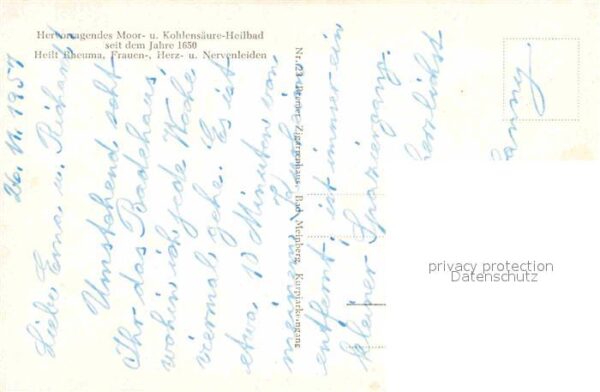 Hervorragendes Moor- u. Kohlensäure-Heilbad
seit dem Jahre 1650
Heilt Rheuma, Frauen-, Herz- u. Nervenleiden
Zigarrenhaus, Bad Meinberg, Kurparkeingang
26. 11. 1957
Liebe Erna u. Richard!
Umstehend seht
Ihr das Badehaus,
wohin ich jede Woche
viermal gehe. Es ist
etwa 10 Minuten von
meinem
entfernt, ist immer ein
kleiner Spaziergang.
Herzlichst
privacy protection
Datenschutz